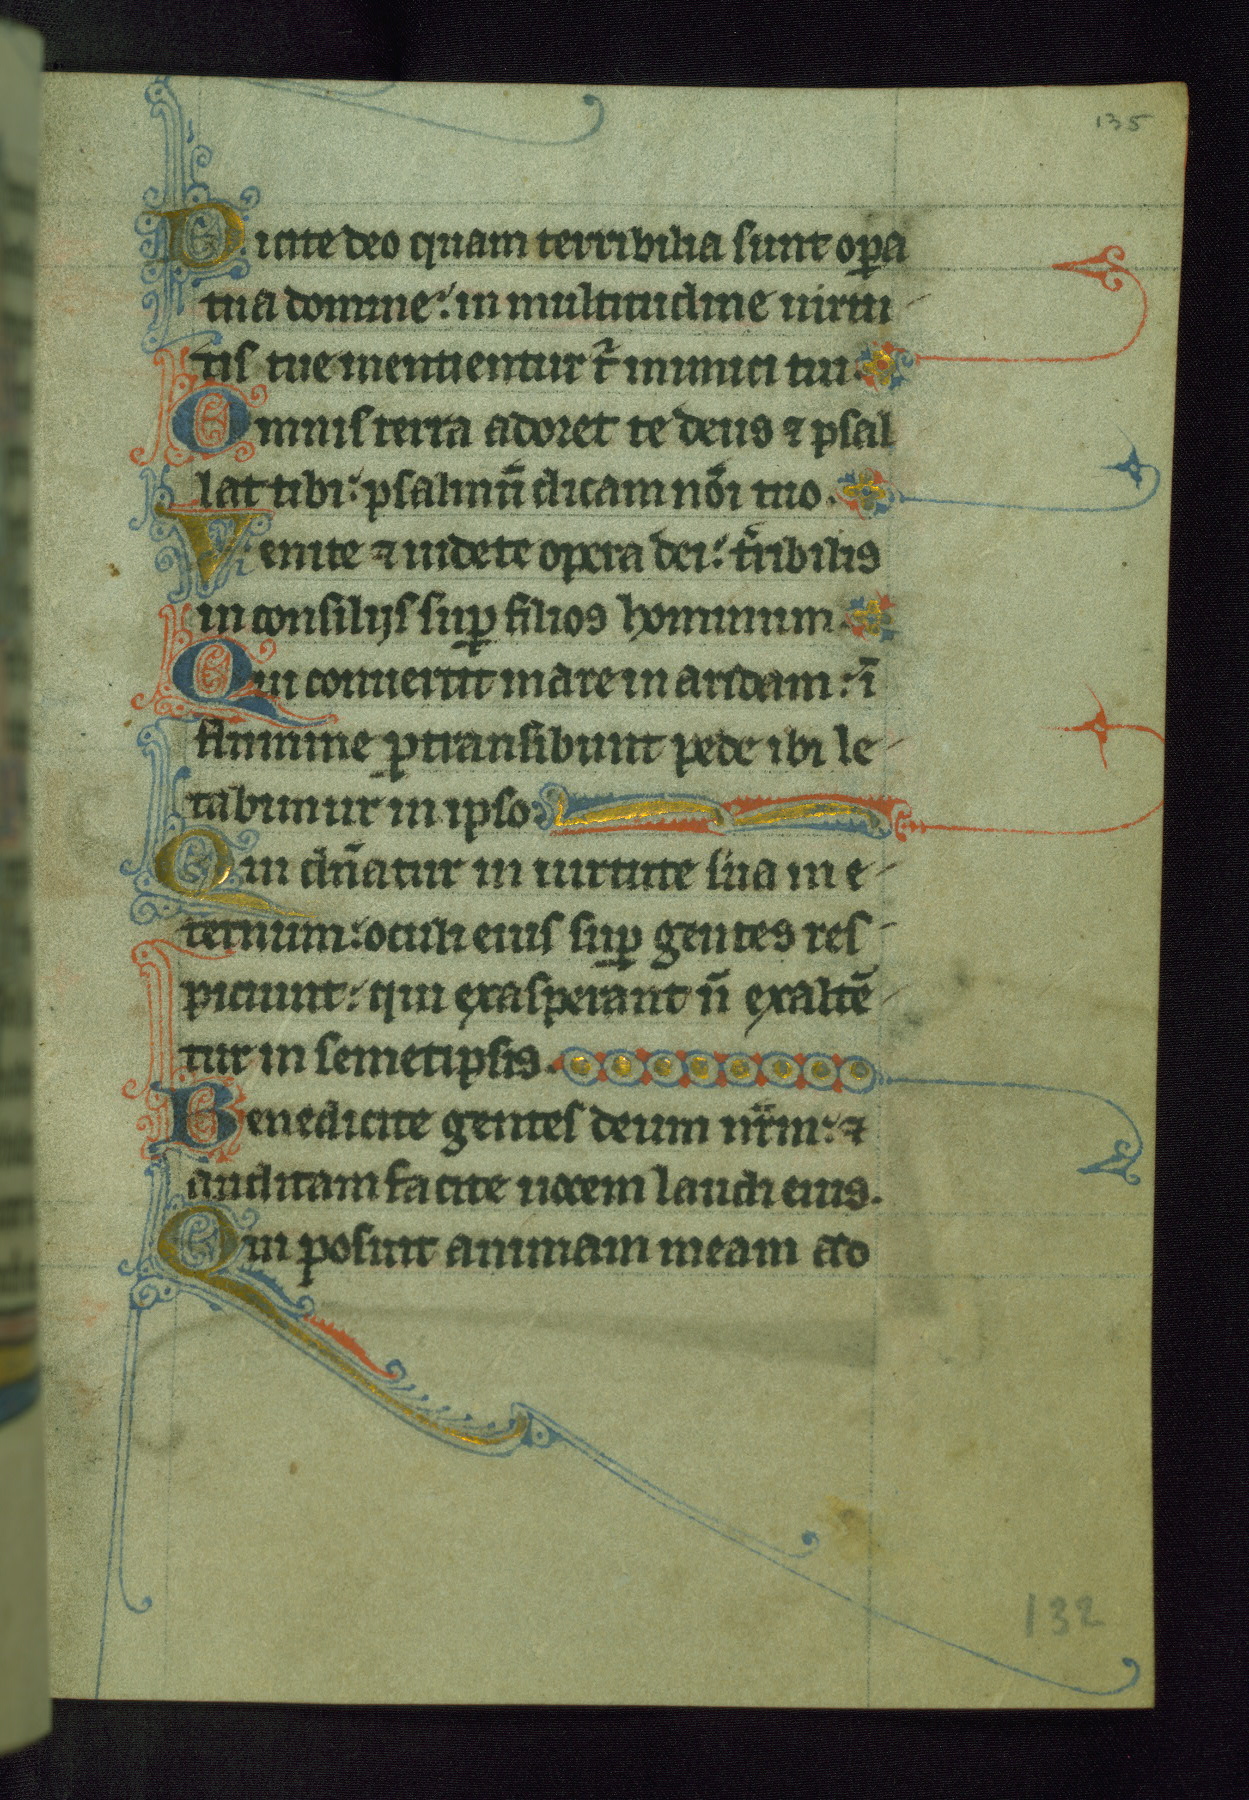 135
Dicite deo quam terribilia sunt oꝑa
tua domine: in multitudine uirtu
tis tue mentientur t̄ inimici tui.
Omnis terra adoret te deus ⁊ psal
lat tibi: psalmū dicam nōi tuo.
Venite ⁊ uidete opera dei: t̄ribilis
in consilijs suꝑ filios hominum.
Qui conuertit mare in aridam: ī
flumine ꝑtransibunt pede ibi le
tabimur in ipso:
Qui dn̄atur in uirtute sua in e
ternum: oculi eius suꝑ gentes res
piciunt: qui exasperant n̄ exaltē
tur in semetipsis.
Benedicite gentes deum nr̄m: ⁊
auditam facite uocem laudi eius.
Qui posuit animam meam ad
132